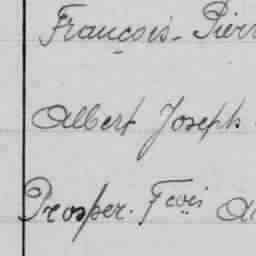 François - Pierr
Albert Joseph
Prosper. Fçois